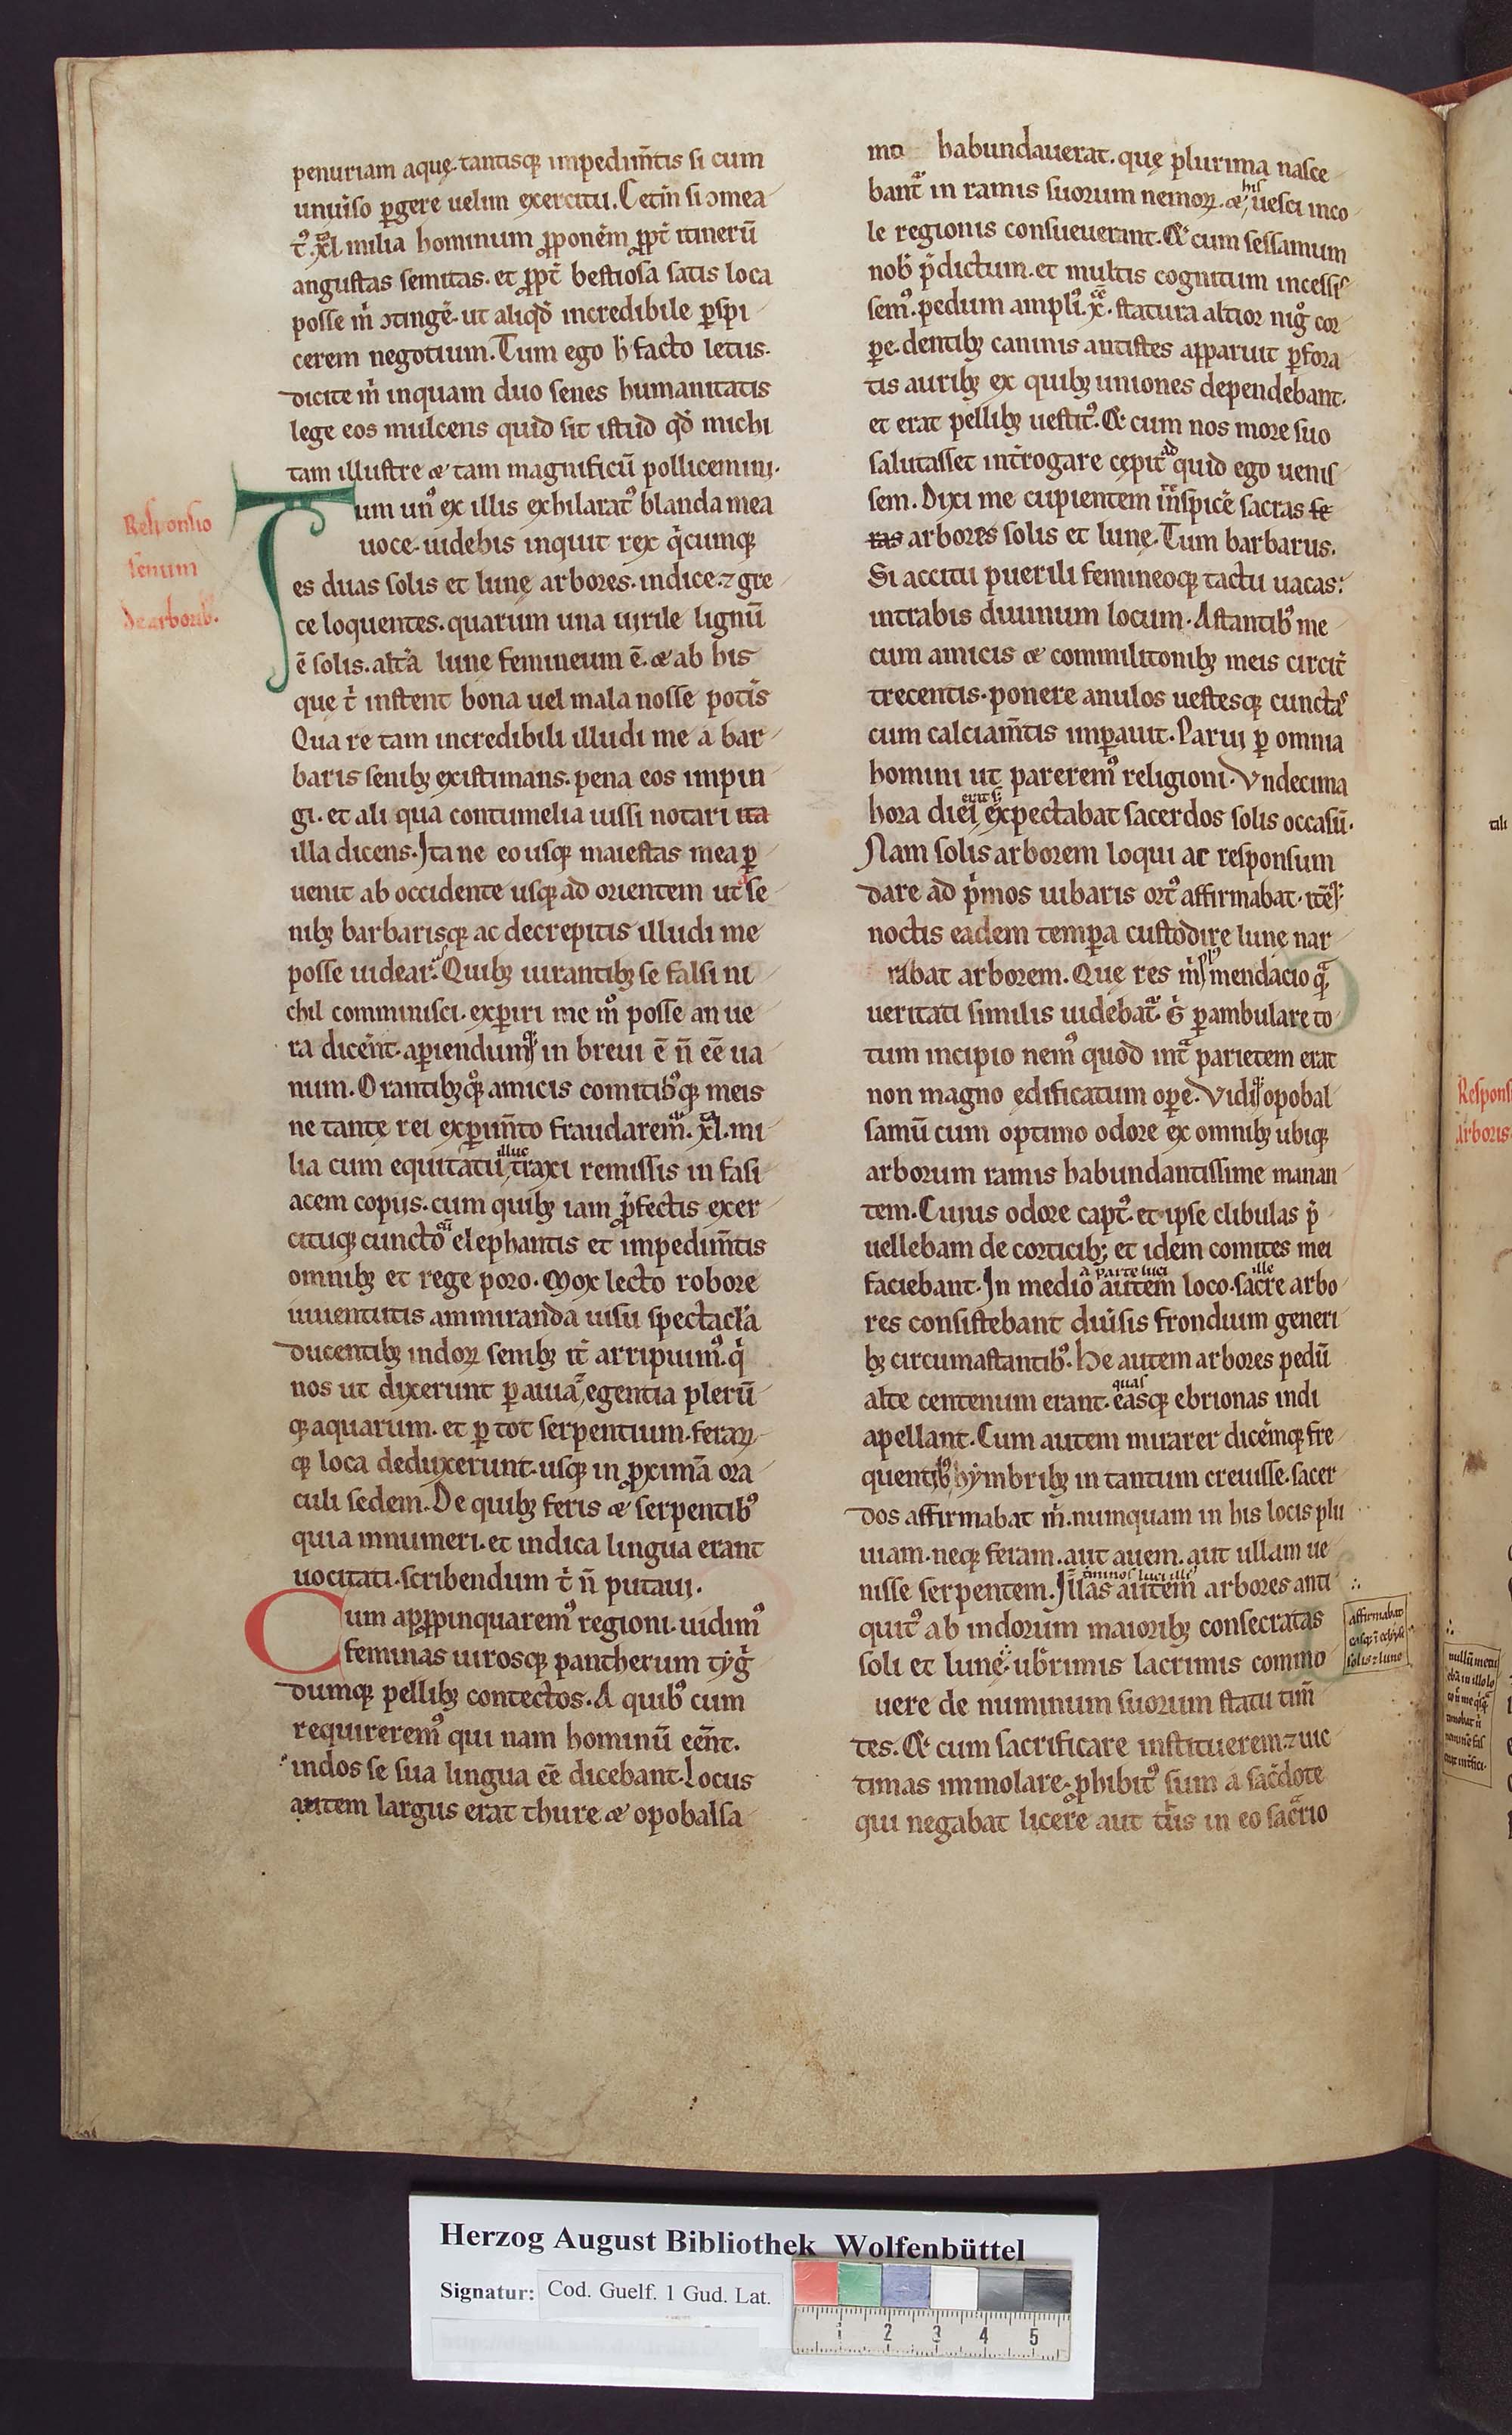 penuriam aquę. tantisq; impedim̄tis si cum
unuiso pgere uelim exercitu. Cetim si ɔmea
t᷒. xl milia hominum p̱ponem p̱pt itinerū
angustas semitas. et p̱pt bestiosa satis loca
posse m̄ ɔtinge. ut aliqd̄ incredibile pspi
cerem negotium. Tum ego h̄ facto letus.
dicite m̄ inquam duo senes humanitatis
lege eos mulcens quid sit istud qd̄ michi
tam illustre & tam magnificū pollicemini.
Responsio
senum
De arborib.
Tum un᷒ ex illis exhilarat᷒ blanda mea
uoce. uidebis inquit rex q̇cumq;
es duas solis et lunę arbores. indice. ⁊ gre
ce loquentes. quarum una uirile lignū
ē solis. alta lune femineum ē. & ab his
que t̄ instent bona uel mala nosse potis
Qua re tam incredibili illudi me a bar
baris senib; existimans. pena eos impin
gi. et ali qua contumelia iussi notari ita
illa dicens. Ita ne eo usq; maiestas mea p
uenit ab occidente usq; ad orientem ut a se
nib; barbarisq; ac decrepitis illudi me
posse uidear. Quib; iurantib; se falsi ni
chil comminisci. expiri me m᷒ posse an ue
ra dicent. apiendumq; in breui ē n̄ ēē ua
num. Orantib;q; amicis comitib᷒q; meis
ne tantę rei expim̄to fraudarem᷒. xl. mi
lia cum equitatū illuc traxi remissis in fasi
acem copiis. cum quib; iam pfectis exer
cituq; cuncto cū elephantis et impedim̄tis
omnib; et rege poro. Mox lecto robore
iuuentutis ammiranda uisu spectacla
ducentib; indoꝝ senib; it arripuim᷒. q̇
nos ut dixerunt p auia egentia plerū
q; aquarum. et p tot serpentium. feraꝝ
q; loca deduxerunt. usq; in p̱ximā ora
culi sedem. De quib; feris & serpentib᷒
quia innumeri. et indica lingua erant
uocitati. scribendum t̄ n̄ putaui.
Cum ap̱p̱inquarem᷒ regioni. uidim᷒
feminas uirosq; pantherum tyg
dumq; pellib; contectos. A quib᷒ cum
requirerem᷒ qui nam hominū eēnt.
indos se sua lingua eē dicebant. Locus
autem largus erat thure & opobalsa
mo habundauerat. quę plurima nasce
bant in ramis suorum nemoꝝ. & his uesci inco
le regionis consueuerant. & cum sessamum
nob pdictum. et multis cognitum incessis
sem᷒. pedum ampli᷒. x. statura altior nig cor
pe. dentib; caninis antistes apparuit pfora
tis aurib; ex quib; uniones dependebant.
et erat pellib; uestit᷒. & cum nos more suo
salutasset introgare cepit ad quid ego uenis
sem. Dixi me cupientem inspice sacras fe
ras arbores solis et lunę. Tum barbarus.
Si accitu puerili femineoq; tactu uacas:
intrabis diuinum locum. Astantib᷒ me
cum amicis & commilitonib; meis circit
trecentis. ponere anulos uestesq; cunctas
cum calciam̄tis impauit. Parui p omnia
homini ut parerem᷒ religioni. Vndecima
hora diei erat si expectabat sacerdos solis occasū.
Nam solis arborem loqui ac responsum
dare ad pmos iubaris ort᷒ affirmabat. itēq;
noctis eadem tempa custodire lunę nar
rabat arborem. Que res m̄ pl᷒ mendacio q̄
ueritati similis uidebat. G pambulare to
tum incipio nem᷒ quod int parietem erat
non magno edificatum ope. Vidiq; opobal
samū cum optimo odore ex omnib; ubiq;
arborum ramis habundantissime manan
tem. Cuius odore capt᷒. et ipse clibulas p
uellebam de corticib; et idem comites mei
faciebant. In medio a parte luci autem loco. sacre ille arbo
res consistebant duisis frondium generi
b; circumastantib᷒. He autem arbores pedū
alte centenum erant. easq; quas ebrionas indi
apellant. Cum autem mirarer dicemq; fre
quentib᷒ hymbrib; in tantum creuisse. sacer
dos affirmabat m̄. numquam in his locis plu
uiam. neq; feram. aut auem. aut ullam ue
nisse serpentem. Illas autem arbores anti
quit᷒ ab indorum maiorib; consecratas
soli et lunę. ubrimis lacrimis commo
uere de numinum suorum statu tim̄
tes. & cum sacrificare instituerem. ⁊ uic
timas immolare. phibit᷒ sum a sacdote
qui negabat licere aut turis in eo sacrio
affirmabat
easq; ī eclipsi
solis ⁊ lune
Respons
Arboris
Herzog August Bibliothek Wolfenbüttel
Signatur: Cod. Guelf. 1 Gud. Lat.
1 2 3 4 5